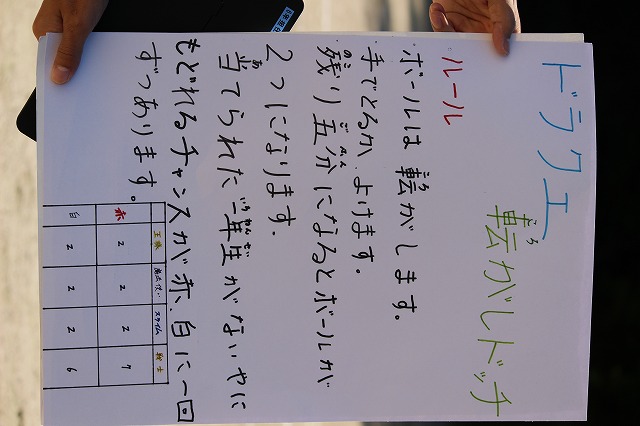 ドラクエ
転がしドッチ
ルール
ボールは 転がします。
手でとるか、よけます。
残り五分になるとボールが
2つになります。
当てられた一年生がないやに
もどれるチャンスが赤、白に一回
ずつあります。
王様 魔法使い スライム 戦士
赤 2 2 2 7
白 2 2 2 6